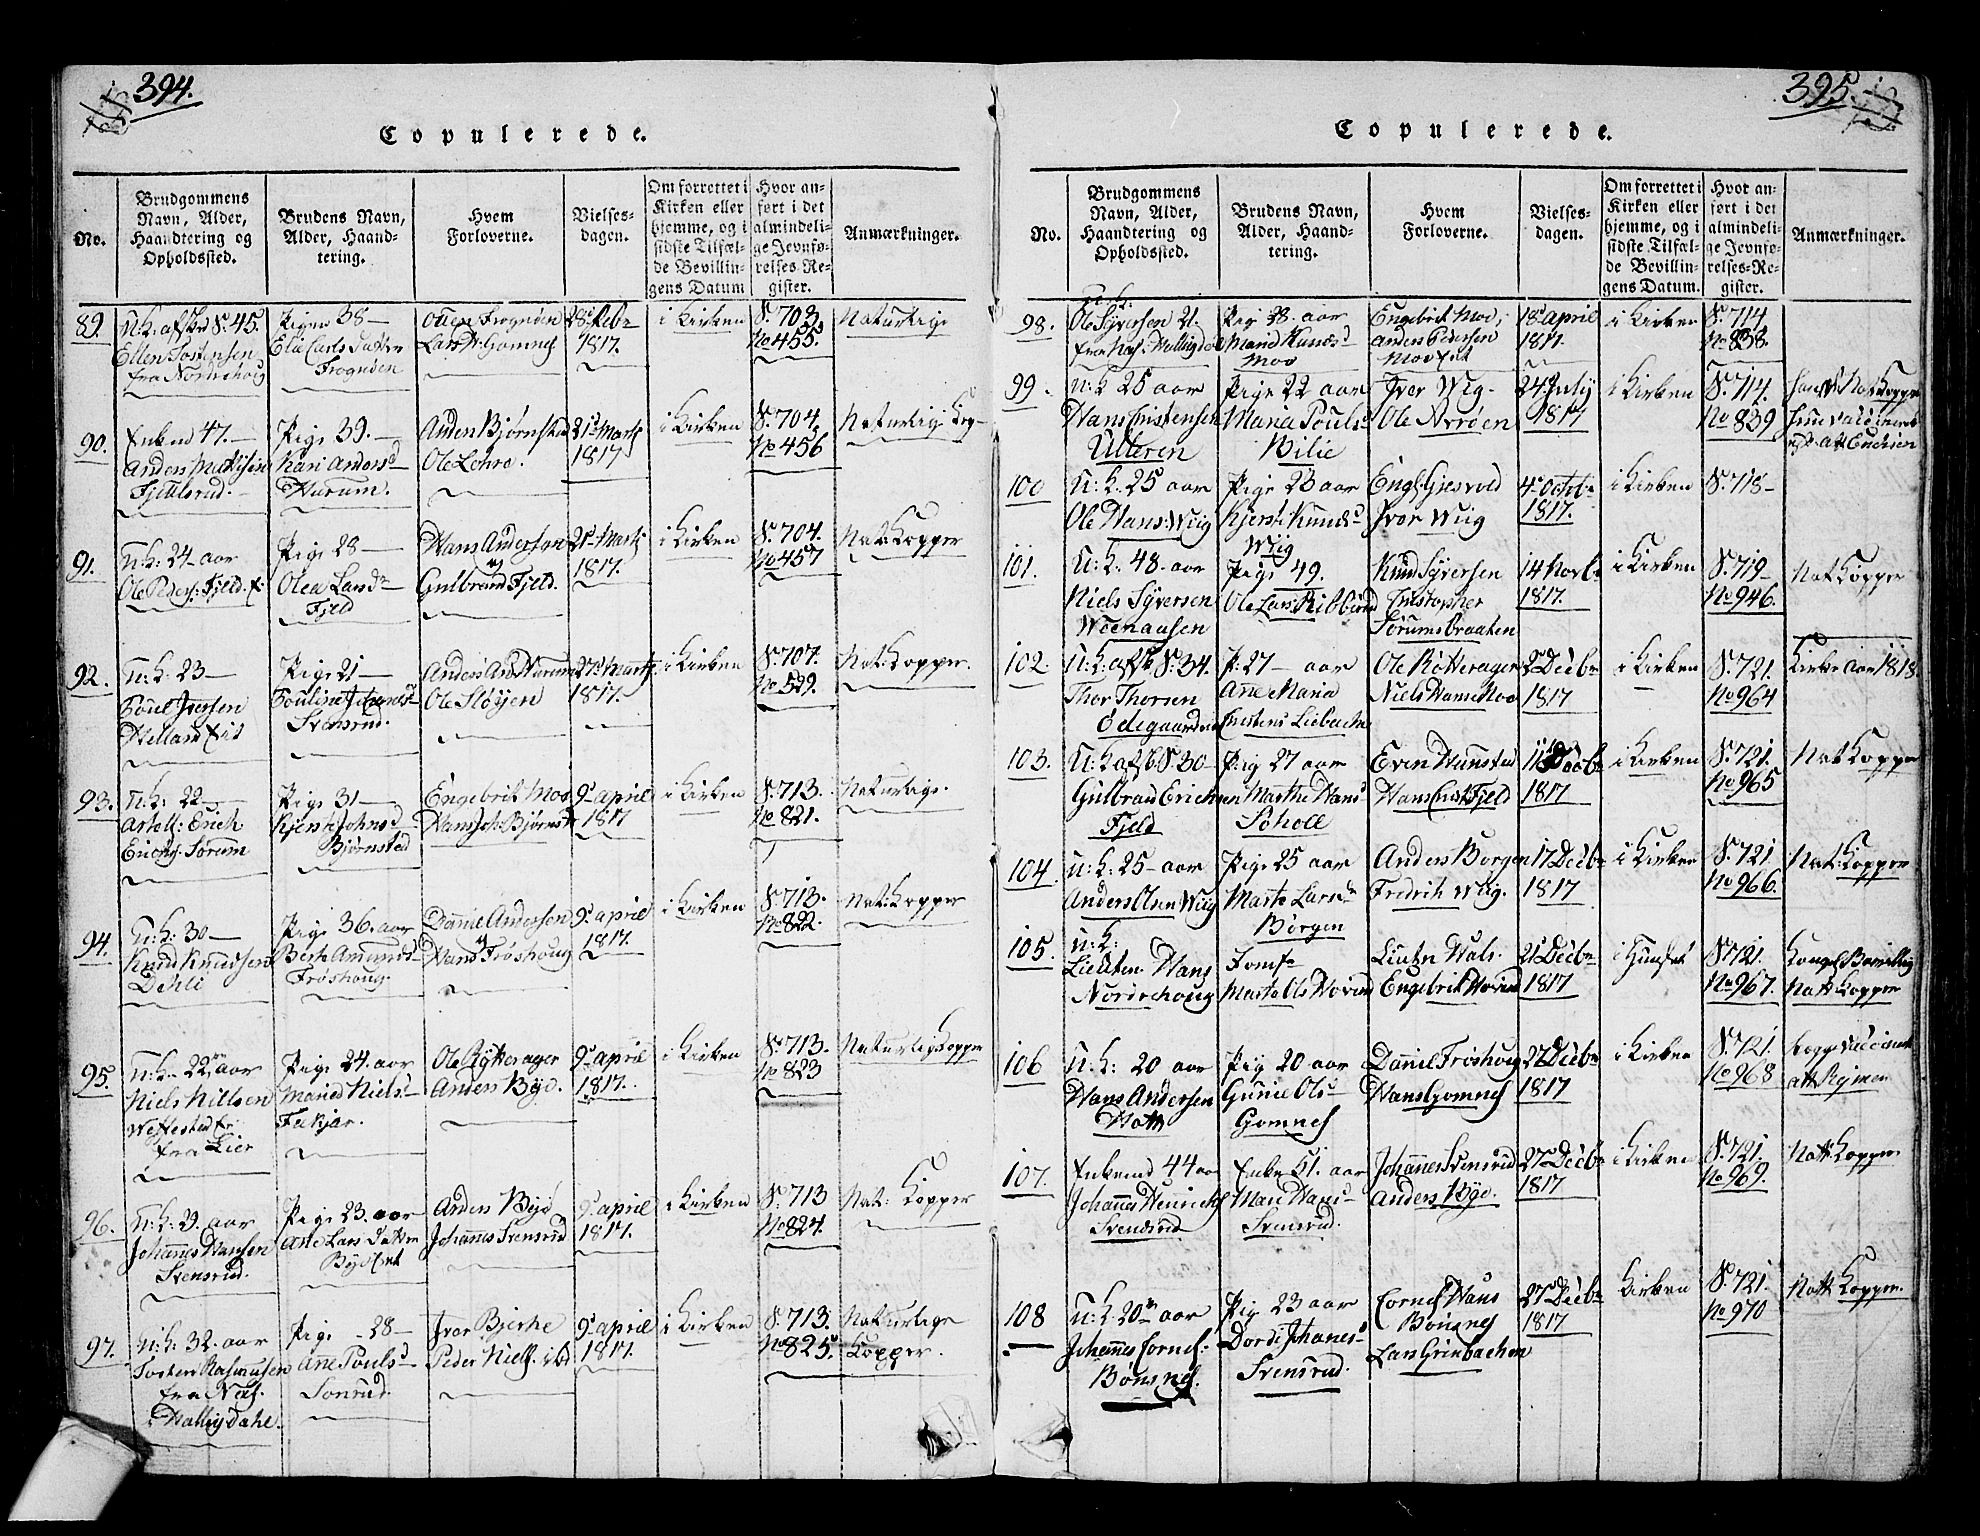 394.
Copulerede.
No.
Brudgommens Navn, Alder, Haandtering og Opholdssted.
Brudens Navn, Alder, Haandtering.
Hvem Forloverne.
Vielses-dagen.
Om forrettet i Kirken eller hjemme, og i sidste Tilfælde Bevillingens Datum
Hvor anført i det almindelige Jevnførelses-Register.
Anmærkninger.
89.
Ellen Tostensen
fra Nordrehoug
Pigen 38—
Frognøen
Lars Gomnes
28 Febr
1817.
i Kirken
S. 703
No 455.
Naturlige
90.
Enkem 47.—
Anders
Fjeldsrud.
Pige 39.—
Kari Andersd
Harum.
Anders Bjørnstad
Ole Lehne.
21 Marts
1817
i Kirken
S. 704.
No 456
Naturlig Kop-
91.
U: K. 24 aar
Ole Peders: Fjeld
Pige 28—
Olea Larsdr
Fjeld
Hans Anderson
og
Gulbrand Fjeld.
21 Marts
1817.
i Kirken
S. 704.
No 457
Nat Kopper
92.
U: K. 23—
Poul Iversen
Pige 21—
Svensrud.
Anders And Harum
Ole Sløyen
27 Marts
1817.
i Kirken
S. 707.
No 529.
Nat: Kopper.
93.
U: K: 22—
Artell: Erich
Erichs. Sørum
Pige 31—
Kjersti Johnsd
Bjørnsted
Engebrit Moe
Hans Joh Bjørnste
9 april
1817
i Kirken
S. 713.
No 821.
Naturlige.
94.
U: K: 30—
Knud Knudsen
Dehli
Pige 36. aar
Berte Amundsd
Frøshoug.
Daniel Andersen
og
Hans Frøshoug
9 april
1817.
i Kirken
S. 713.
No 822.
Nat: Kopper
95.
U: K. 22 aar
Niels Nillsen
fra Lier
Pige 24. aar
Maried Niels
Feckjær.
Ole Rytterager
Anders Bye.
9 april
1817.
i Kirken
S. 713.
No 823
Naturlig Kopper
96.
U: K: 29. aar
Johannes Hansen
Svensrud.
Pige 23. aar
Ane Lars Datter
Anders Bye
Johannes Svensrud
9 april
1817.
i Kirken
S. 713
No 824.
Nat: Kopper
97.
U: K. 32. aar
Tosten Rasmusen
fra Næs.
i Hallingdahl.
Pige - 28—
Ane Pouls
Sonrud.
Iver Bjerke
Peder Niels. ibd
9 april
1817.
i Kirken
S. 713.
No 825.
Naturlige
Kopper.
395.
Copulerede.
No.
Brudgommens Navn, Alder, Haandtering og Opholdssted.
Brudens Navn, Alder, Haandtering.
Hvem Forloverne.
Vielses-dagen.
Om forrettet i Kirken eller hjemme, og i sidste Tilfælde Bevillingens Datum.
Hvor anført i det almindelige Jevnførelses-Register.
Anmærkninger.
98.
U: K:
Ole Syversen 21.
Pige 28. aar
Moe
Engebrit Moe,
Anders Pedersen
18 April
1817.
i Kirken
S. 714
No 838.
99.
U: K 25 aar
Hans Cristensen
Ulleren
Pige 22 aar
Maria Pouls
Bilie
Iver Wiig.
Ole Arrøen
24 July
1817
i Kirken
S. 714.
No 839
100
U: K. 25 aar
Ole Hans: Wiig
Pige 23 aar
Kjersti Knuds
Wiig
Eng: Giesvold
Iver Wiig
4 Octobr
1817.
i Kirken
S. 718—
101.
U: K. 48. aar
Niels Syversen
Pige 49.
Ole Lars Ribberud
Knud Syversen
Cristopher
Sørumsbraaten
14 Novbr
1817.
i Kirken
S. 719—
No 946.
Nat Kopper
102.
Thor Thorsen
Ødegaarden
P: 27— aar
Ane Maria
Cristens Liebachen
Ole Røtterager
Niels Hans Moe
2 Decbr
1817
i Kirken
S. 721.
No 964
103.
Gulbran Erichsen
Fjeld
Pig 27 aar
Marthe Hans
Soholl
Even Hunstad
Hans Crist Fjeld
1817
i Kirken
S. 721.
No 965
Nat Kopper
104.
U: K: 25— aar
Anders Olsen Wiig
Pige 25 aar
Marte Larsdr
Børgen
Anders Borgen
Fredrik Wiig.
17 Decbr
1817
i Kirken
S. 721
No 966.
Nat: Kopper
105.
U: K:
Lieuten. Hans
Nordrehoug
Jomfr
Marte Ols Hovind
Lieutn Wals.
Engebrit Hovind
21 Decbr
1817
S. 721.
No 967.
Natt Kopper
106
U: K: 20 aar
Hans Andersen
Pig 20 aar
Gunild Ols
Gomnes
Daniel Frøshoug
Hans Gomnes
27 Decbr
1817
i Kirken
S. 721.
No 968
107.
Enkemd 44 aar
Johannes Henrichs
Svensrud
Enke 51. aar
Mari Hans
Svensrud.
Johannes Svensrud
Anders Bye.
27 Decbr
1817
i Kirken
S. 721.
No 969.
Natt: Kopper.
108
U: K. 20 aar
Johannes Cornel:
Bønsnes.
Pig 23 aar
Dordi Johanes
Svensrud.
Cornel Hans
Bønsnes
Lars Grinbachen
27 Decbr
1817
Kirken
S. 721.
No 970
Natt Kopper.